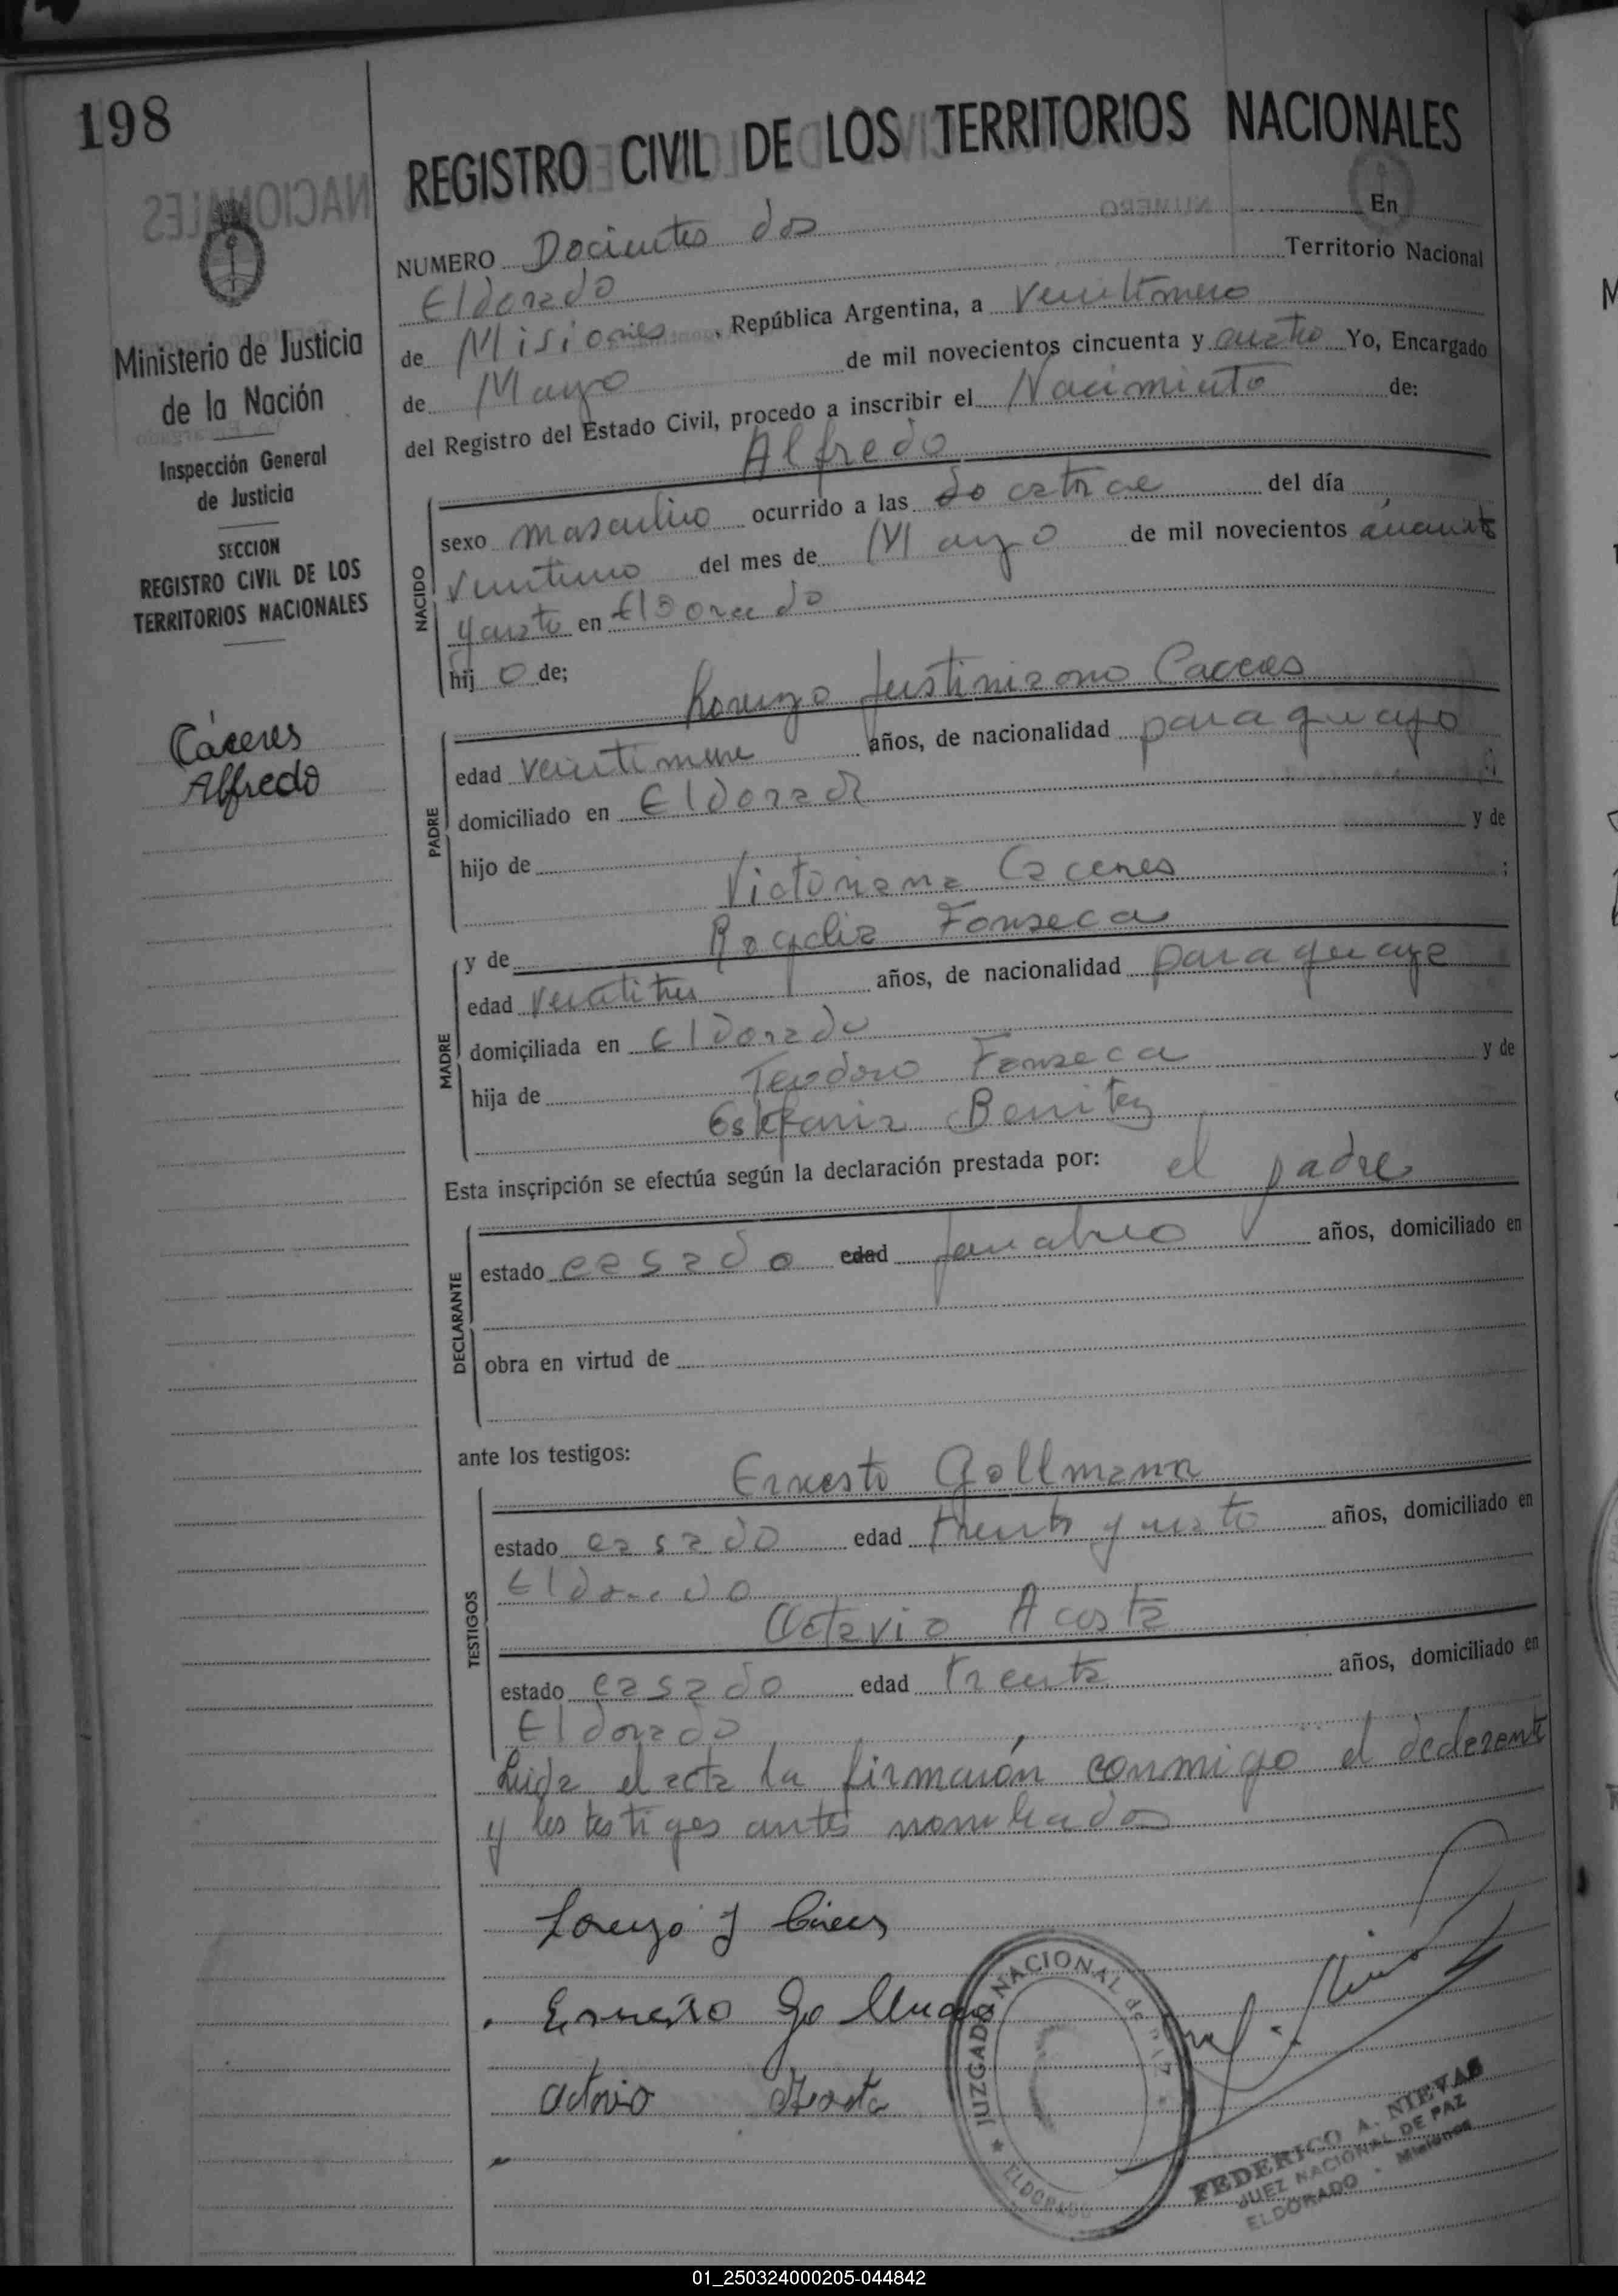 198
REGISTRO CIVIL DE LOS TERRITORIOS NACIONALES
NUMERO Docientos dos En
Eldorado Territorio Nacional
de Misiones, República Argentina, a
de Mayo de mil novecientos cincuenta y cuatro Yo, Encargado
del Registro del Estado Civil, procedo a inscribir el Nacimiento de:
Alfredo
Ministerio de Justicia
de la Nación
Inspección General
de Justicia
SECCION
REGISTRO CIVIL DE LOS
TERRITORIOS NACIONALES
Cáceres
Alfredo
NACIDO
sexo masculino ocurrido a las del día
del mes de Mayo de mil novecientos
en Eldorado
hij o de;
Lorenzo Justiniano Caceres
PADRE
edad años, de nacionalidad paraguayo
domiciliado en Eldorado
hijo de y de
Victoriana Caceres
y de Rogelia Fonseca
MADRE
edad veintitres años, de nacionalidad paraguaya
domiciliada en Eldorado
hija de Teodoro Fonseca y de
Benitez
Esta inscripción se efectúa según la declaración prestada por: el padre
DECLARANTE
estado casado edad años, domiciliado en
obra en virtud de
ante los testigos:
Ernesto Gollmann
TESTIGOS
estado casado edad años, domiciliado en
Eldorado
Octavio Acosta
estado casado edad treinta años, domiciliado en
Eldorado
Leida el acta la firmaron conmigo el declarante
y los testigos antes nombrados
Lorenzo J
Ernesto Gollmann
Acosta
JUZGADO NACIONAL de PAZ
ELDORADO
FEDERICO A. NIEVAS
JUEZ NACIONAL DE PAZ
ELDORADO - Misiones
01_250324000205-044842